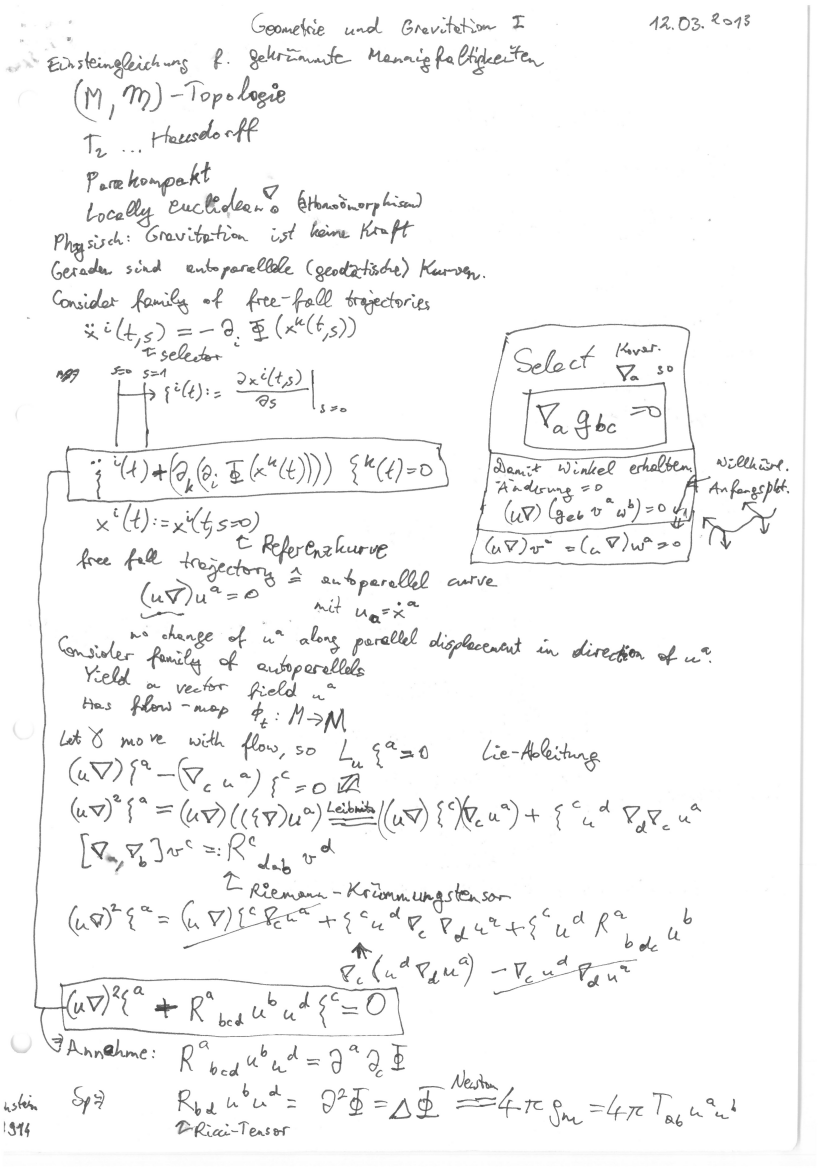 Geometrie und Gravitation I 12.03.2013
Einsteingleichung f. gekrümmte Mannigfaltigkeiten
(M, m) - Topologie
T₂ ... Hausdorff
Parakompakt
Locally euclidean
Physisch: Gravitation ist keine Kraft
Geraden sind autoparallele (geodätische) Kurven.
Consider family of free-fall trajectories
ẍⁱ(t,s) = -∂ᵢ Φ(xᵏ(t,s))
↑ selector
s=0 s=1
→ ξⁱ(t) := ∂xⁱ(t,s)/∂s |ₛ₌₀
ξ̈ⁱ(t) + (∂ₖ(∂ᵢ Φ(xᵏ(t)))) ξᵏ(t) = 0
xⁱ(t) := xⁱ(t, s=0)
↑ Referenzkurve
Select Kovar. ∇ₐ so
∇ₐ g_bc = 0
Damit Winkel erhalten
Änderung = 0
(u∇)(g_ab vᵃ wᵇ) = 0
(u∇)vᵃ = (u∇)wᵃ = 0
Willkürl.
Anfangspkt.
free fall trajectory ≙ autoparallel curve
(u∇)uᵃ = 0 mit uₐ = ẋᵃ
no change of uᵃ along parallel displacement in direction of uᵃ.
Consider family of autoparallels
Yield a vector field uᵃ
Has flow-map ϕₜ: M→M
Let γ move with flow, so L_u ξᵃ = 0 Lie-Ableitung
(u∇)ξᵃ - (∇_c uᵃ) ξᶜ = 0
(u∇)²ξᵃ = (u∇)((ξ∇)uᵃ) =Leibnitz= ((u∇)ξᶜ)(∇_c uᵃ) + ξᶜ u^d ∇_d ∇_c uᵃ
[∇ₐ, ∇_b]vᶜ =: Rᶜ_dab v^d
↑ Riemann-Krümmungstensor
(u∇)²ξᵃ = (u∇)ξᶜ ∇_c uᵃ + ξᶜ u^d ∇_c ∇_d uᵃ + ξᶜ u^d Rᵃ_bdc uᵇ
↑
∇_c (u^d ∇_d uᵃ) - ∇_c u^d ∇_d uᵃ
(u∇)²ξᵃ + Rᵃ_bcd uᵇ u^d ξᶜ = 0
Annahme: Rᵃ_bcd uᵇ u^d = ∂ᵃ ∂_c Φ
Sp⇒ R_bd uᵇ u^d = ∂²Φ = ΔΦ =Newton= 4π ρₘ = 4π T_ab uᵃ uᵇ
↑ Ricci-Tensor